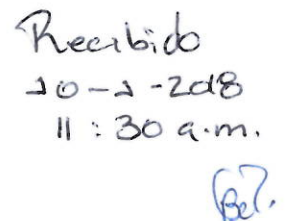 Recibido
10-1-2018
11:30 a.m.